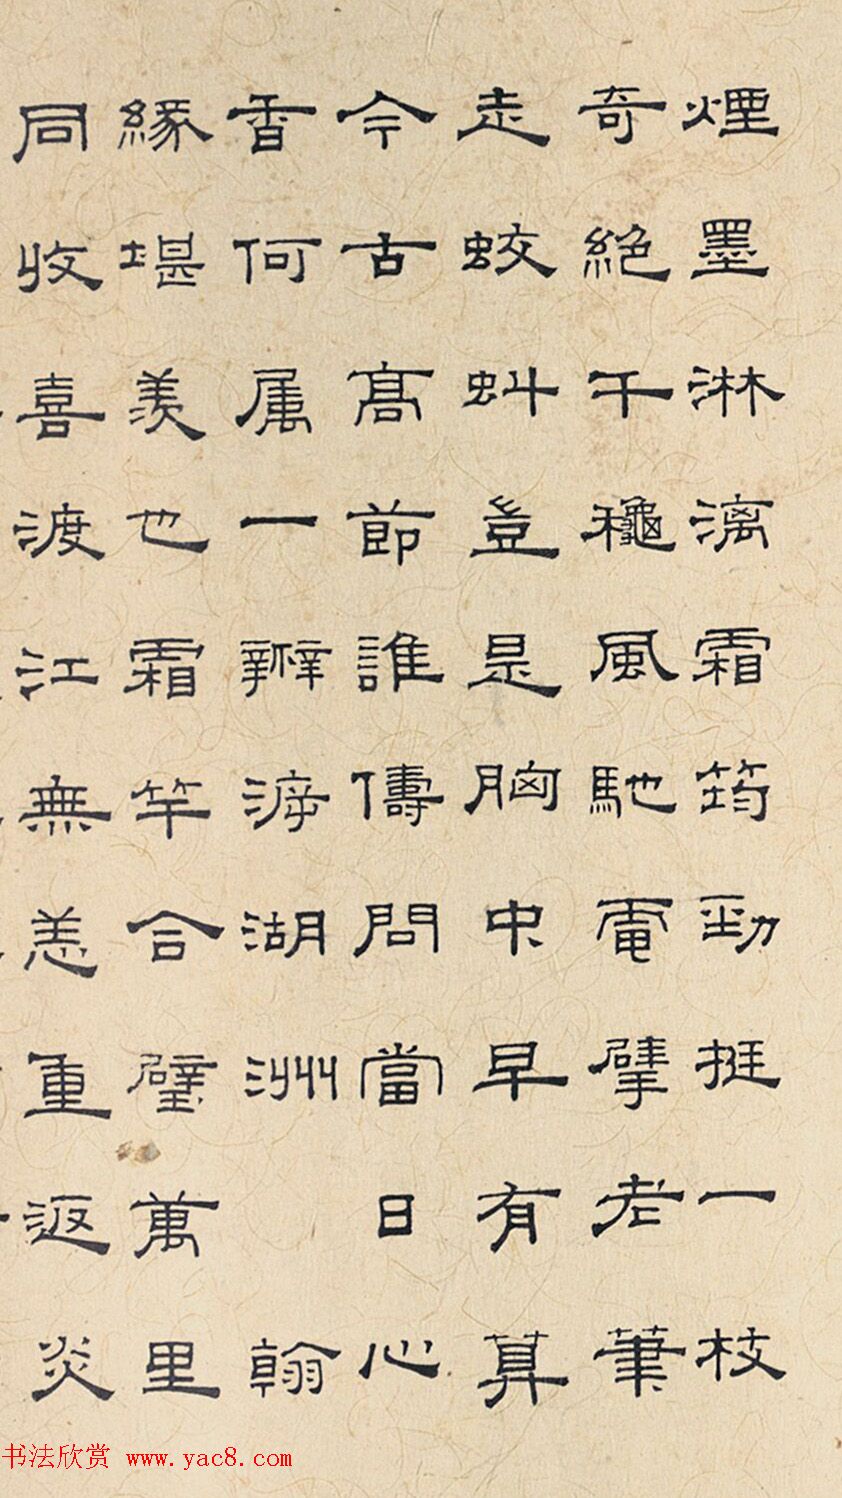 煙墨淋漓霜筠勁挺一枝
奇絕千龝風馳電擘老筆
走蛟虯豈是胸中早有算
今古高節誰儔問當日心
香何属一瓣渟湖洲 翰
緣堪羨也霜竿合璧萬里
同收喜渡江無恙重返炎
书法欣赏 www.yac8.com